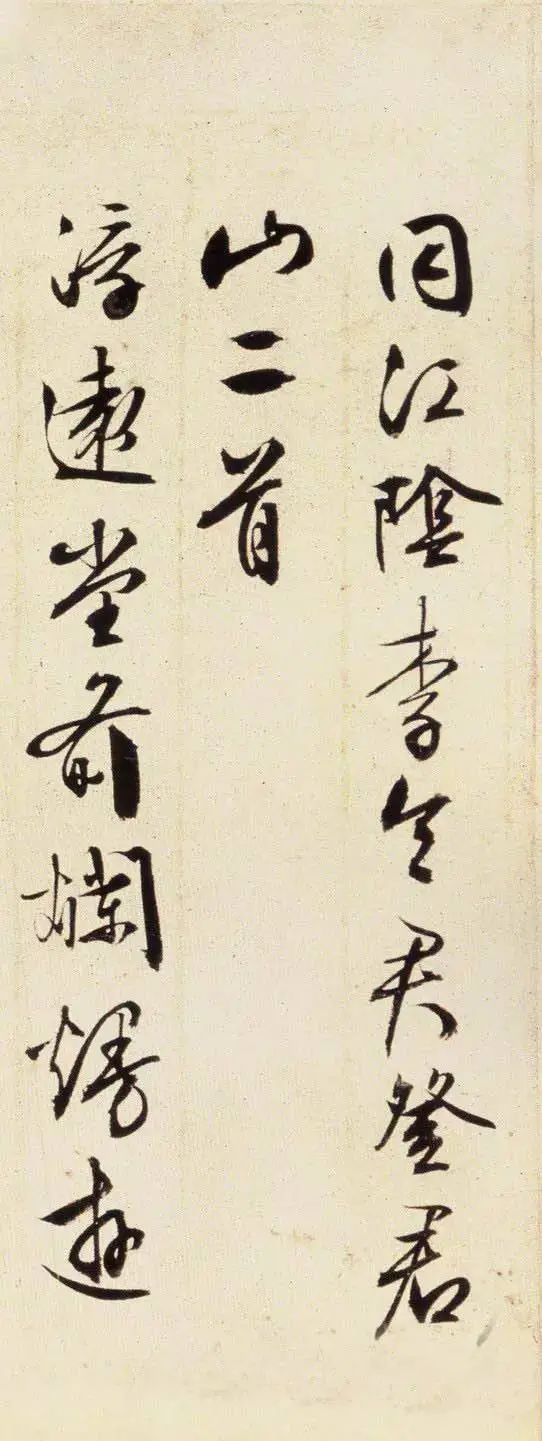 同江陰李令君登君
山二首
浮遠堂前爛熳遊